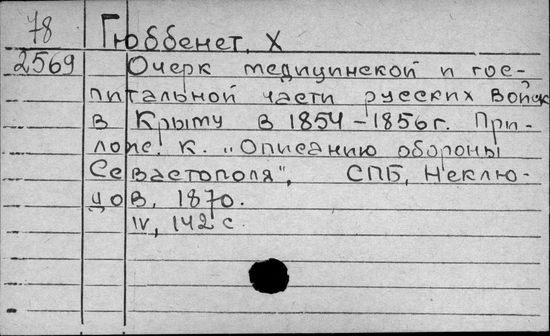 78 Гюббенет, Х
2569 Очерк медицинской и гос-
питальной части русских войск
в Крыму в 1854-1856г. При-
лож. к. "Описанию обороны
Севастополя", СПБ, Неклю-
дов, 1870.
IV, 142 с.